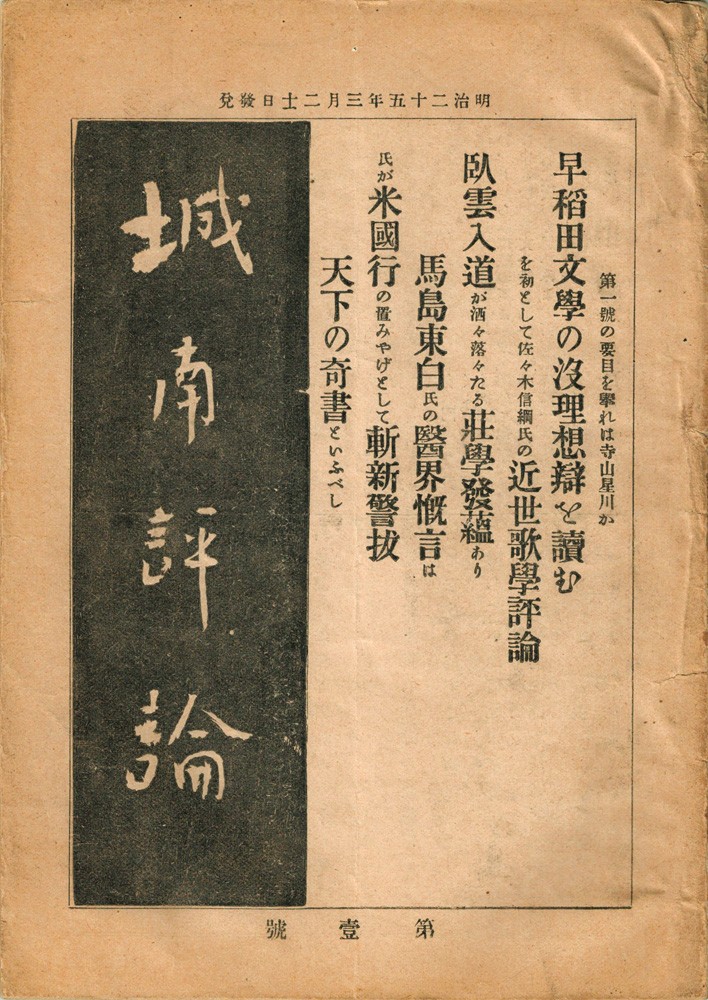 明治二十五年三月二十日發兌
第一號の要目を擧れは寺山星川か
早稻田文學の沒理想辯を讀む
を初として佐々木信綱氏の近世歌學評論
臥雲入道が洒々落々たる莊學發蘊あり
馬島東白氏の醫界慨言は
氏が米國行の置みやげとして斬新警拔
天下の奇書といふべし
城南評論
第壹號